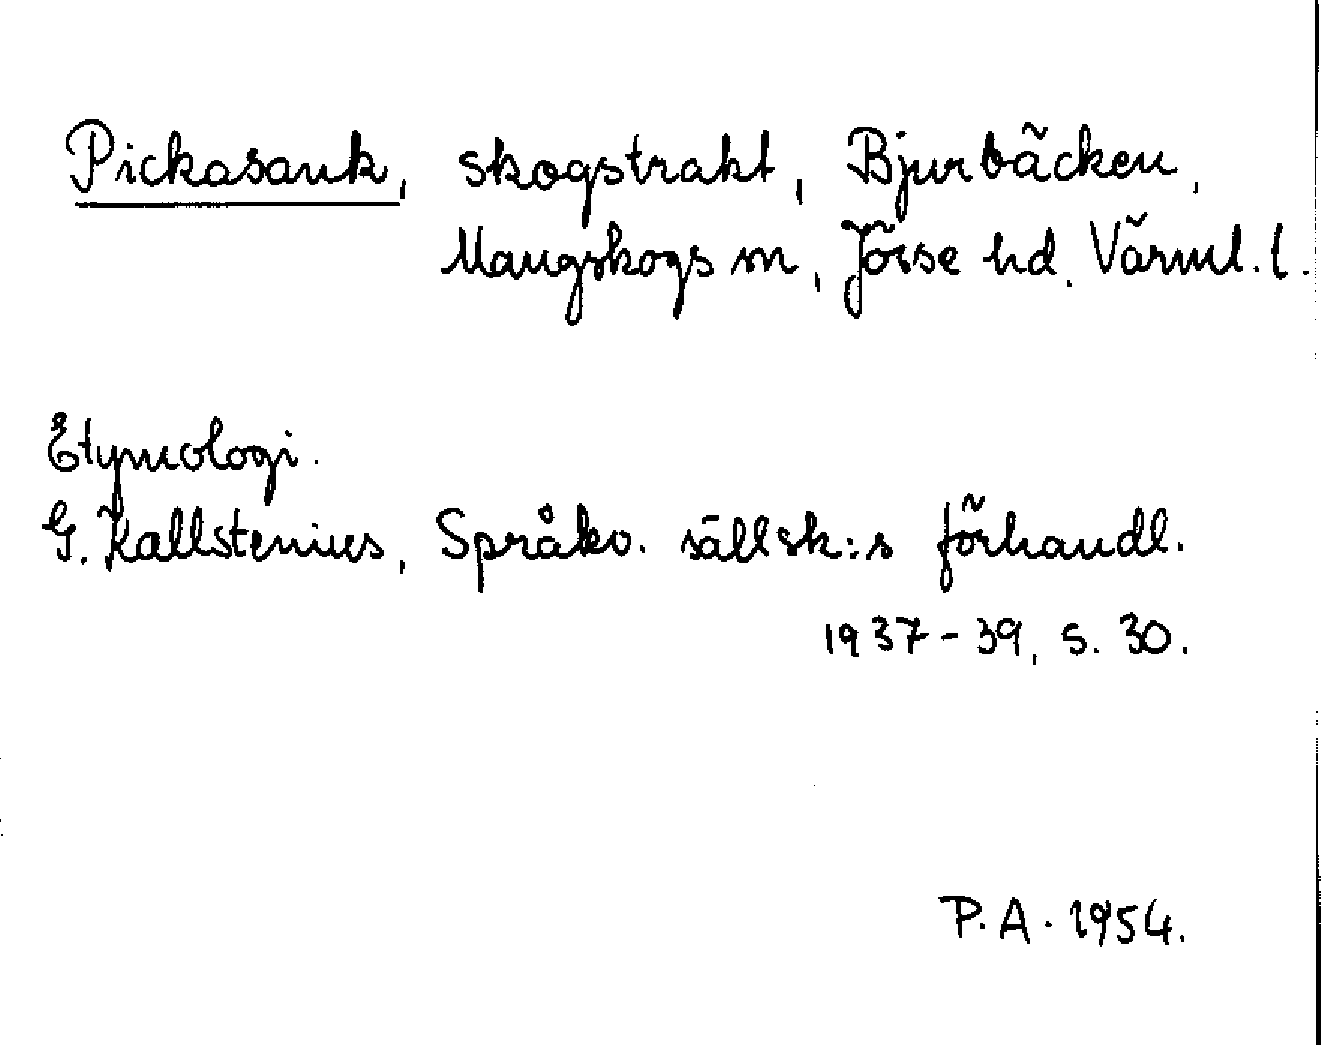 Pickasank, skogstrakt, Bjurbäcken,
Mangskogs sn, Jösse hd. Värml. l.
Etymologi.
G. Kallstenius, Språkv. sällsk:s förhandl.
1937-39, s. 30.
P.A. 1954.